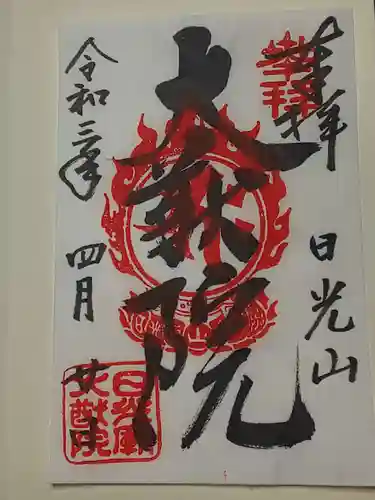 奉拝
日光山
大猷院
令和三年
四月
廿日
日光廟
大猷院